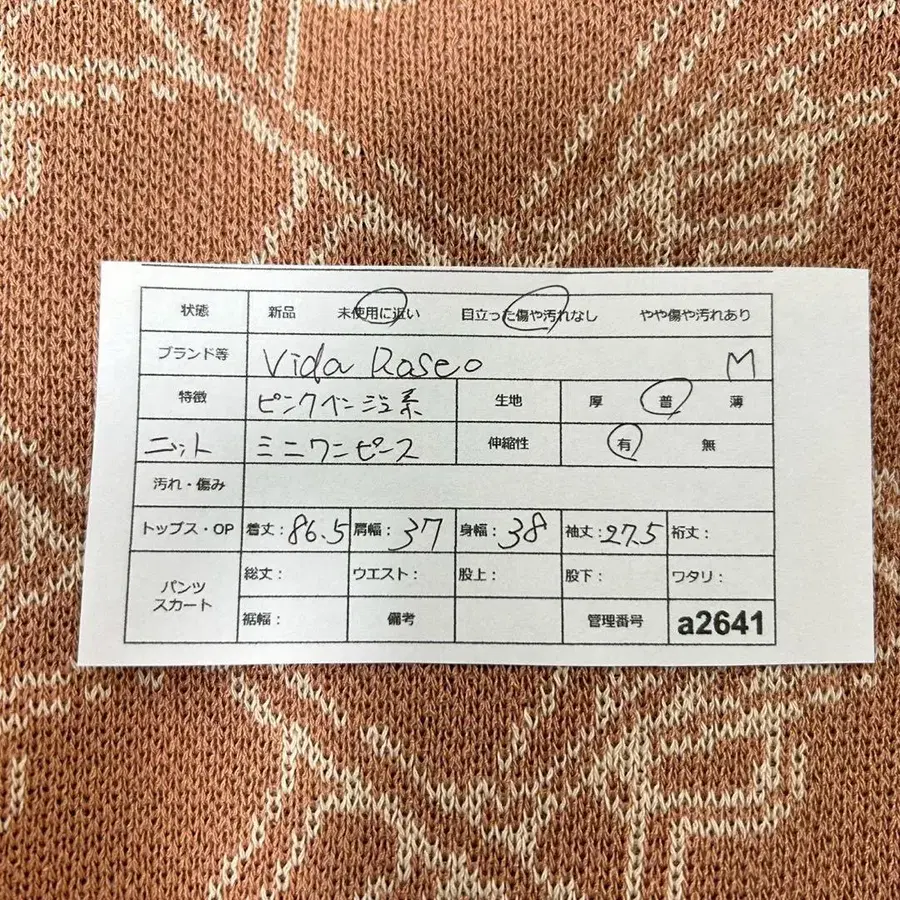 状態 新品 未使用に近い 目立った傷や汚れなし やや傷や汚れあり
ブランド等 Vida Raseo M
特徴 ピンクベージュ系 生地 厚 普 薄
ニット ミニワンピース 伸縮性 有 無
汚れ・傷み
トップス・OP 着丈：86.5 肩幅：37 身幅：38 袖丈：27.5 裄丈：
パンツ スカート 総丈： ウエスト： 股上： 股下： ワタリ：
裾幅： 備考 管理番号 a2641